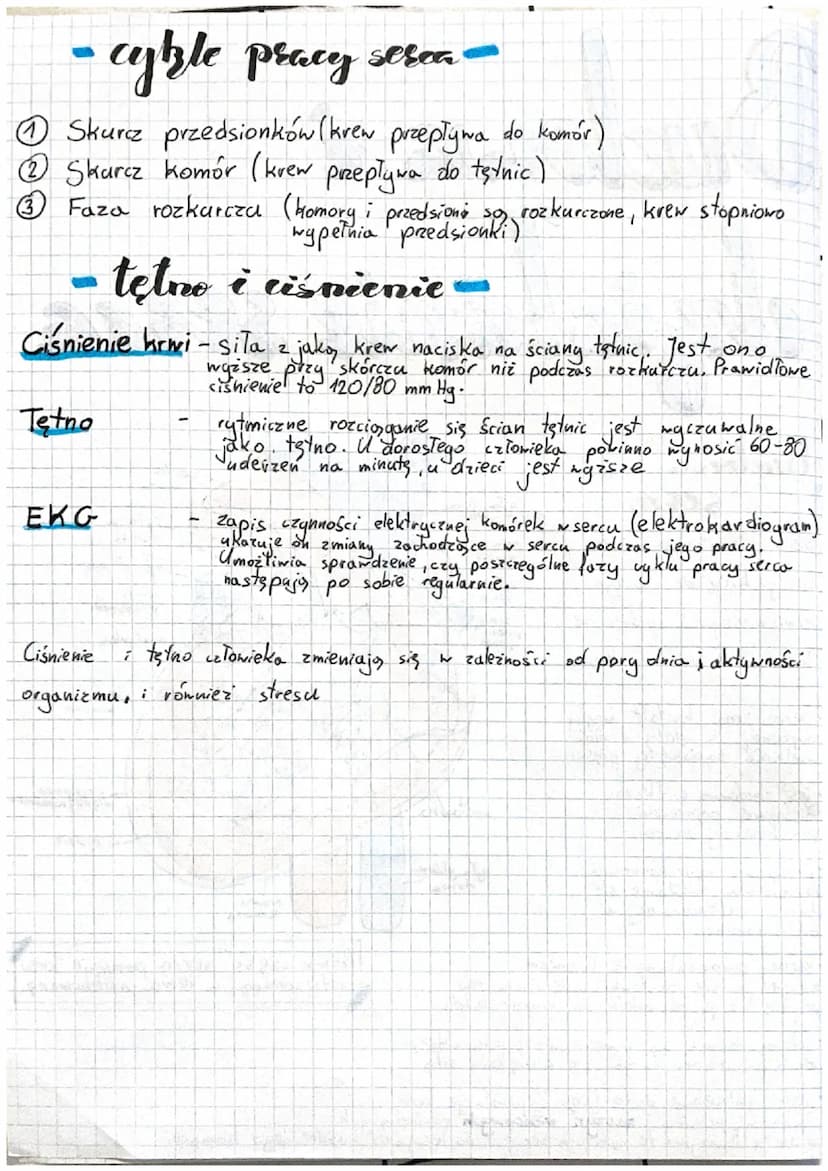 - cykle pracy serca -
① Skurcz przedsionków (krew przepływa do komór)
② Skurcz komór (krew przepływa do tętnic)
③ Faza rozkurczu (komory i przedsioni są rozkurczone, krew stopniowo
wypełnia przedsionki)
- tętno i ciśnienie -
Ciśnienie krwi - siła z jaką krew naciska na ściany tętnic. Jest ono
wyższe przy skórczu komór niż podczas rozkurczu. Prawidłowe
ciśnienie to 120/80 mm Hg.
Tętno - rytmiczne rozciąganie się ścian tętnic jest wyczuwalne
jako tętno. U dorosłego człowieka powinno wynosić 60-80
uderzeń na minutę, u dzieci jest wyższe
EKG - zapis czynności elektrycznej komórek w sercu (elektrokardiogram)
ukazuje on zmiany zachodzące w sercu podczas jego pracy.
Umożliwia sprawdzenie, czy poszczególne fazy cyklu pracy serca
następują po sobie regularnie.
Ciśnienie i tętno człowieka zmieniają się w zależności od pory dnia i aktywności
organizmu, i również stresu